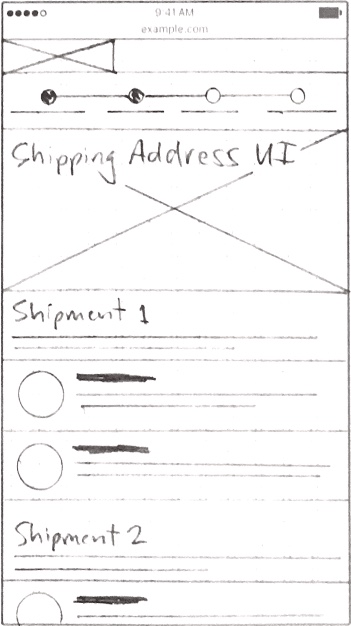 9:41 AM
example.com
Shipping Address UI
Shipment 1
Shipment 2